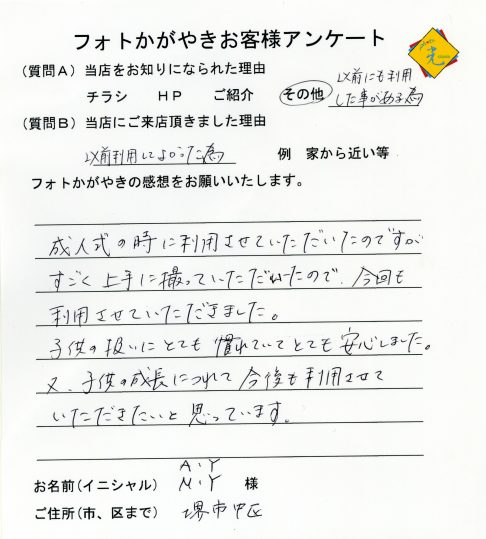 フォトかがやきお客様アンケート
光
(質問A) 当店をお知りになられた理由
以前にも利用
チラシ HP ご紹介 その他 した事がある為
(質問B) 当店にご来店頂きました理由
以前利用してよかった為 例 家から近い等
フォトかがやきの感想をお願いいたします。
成人式の時に利用させていただいたのですが
すごく上手に撮っていただけたので、今回も
利用させていただきました。
子供の扱いにとても慣れていてとても安心しました。
又、子供の成長につれて今後も利用させて
いただきたいと思っています。
A・Y
お名前(イニシャル) M・Y 様
ご住所(市、区まで) 堺市中区